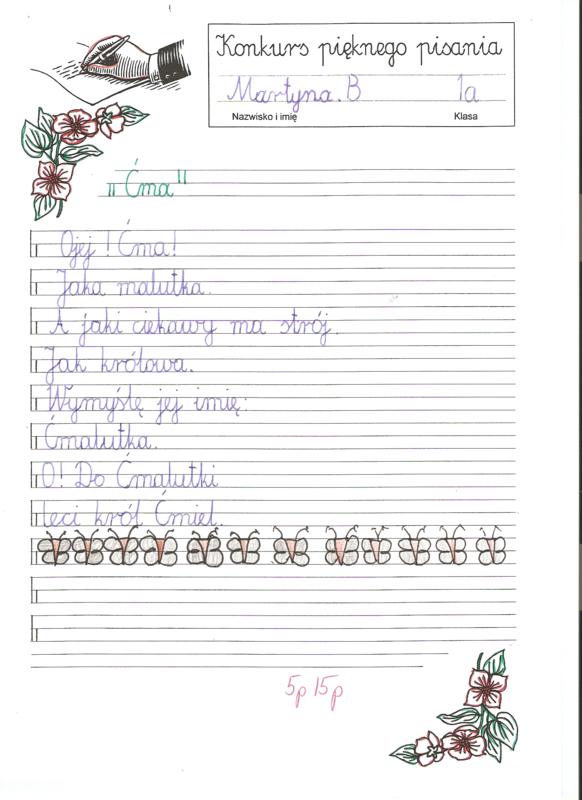 Konkurs pięknego pisania
Martyna. B 1a
Nazwisko i imię Klasa
„Ćma"
Ojej! Ćma!
Jaka malutka.
A jaki ciekawy ma strój.
Jak królowa.
Wymyślę jej imię:
Ćmalutka.
O! Do Ćmalutki
leci król Ćmiel.
5p 15p